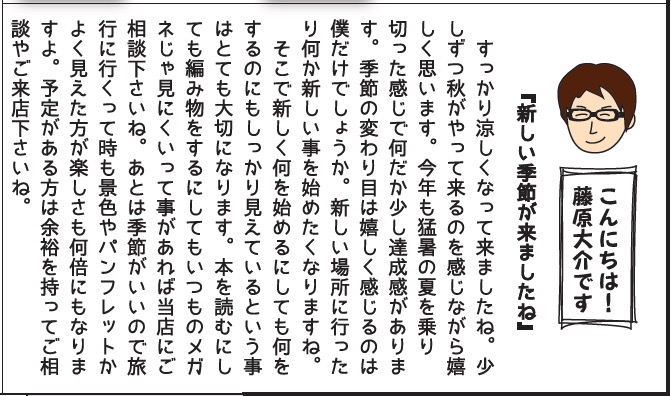 こんにちは！
藤原大介です
『新しい季節が来ましたね』
すっかり涼しくなって来ましたね。少
しずつ秋がやって来るのを感じながら嬉
しく思います。今年も猛暑の夏を乗り
切った感じで何だか少し達成感がありま
す。季節の変わり目は嬉しく感じるのは
僕だけでしょうか。新しい場所に行った
り何か新しい事を始めたくなりますね。
そこで新しく何を始めるにしても何を
するのにもしっかり見えているという事
はとても大切になります。本を読むにし
ても編み物をするにしてもいつものメガ
ネじゃ見にくいって事があれば当店にご
相談下さいね。あとは季節がいいので旅
行に行くって時も景色やパンフレットか
よく見えた方が楽しさも何倍にもなりま
すよ。予定がある方は余裕を持ってご相
談やご来店下さいね。